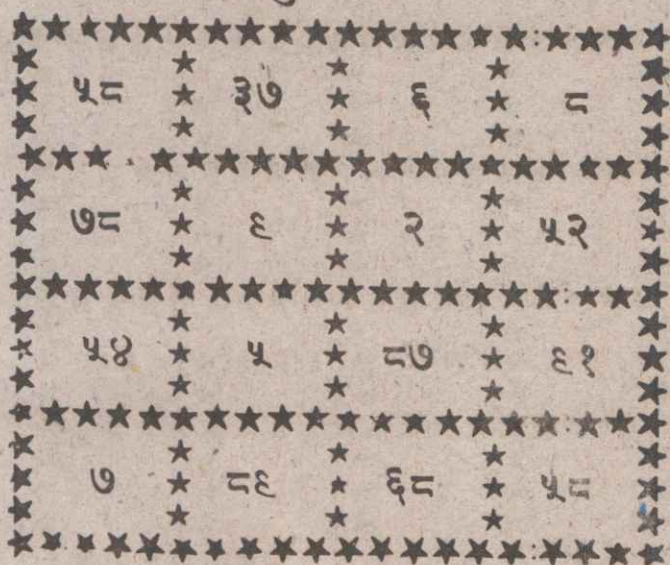 ५८ ३७ ६ ८
७८ ९ २ ५२
५४ ५ ८७ ९१
७ ८९ ६८ ५८